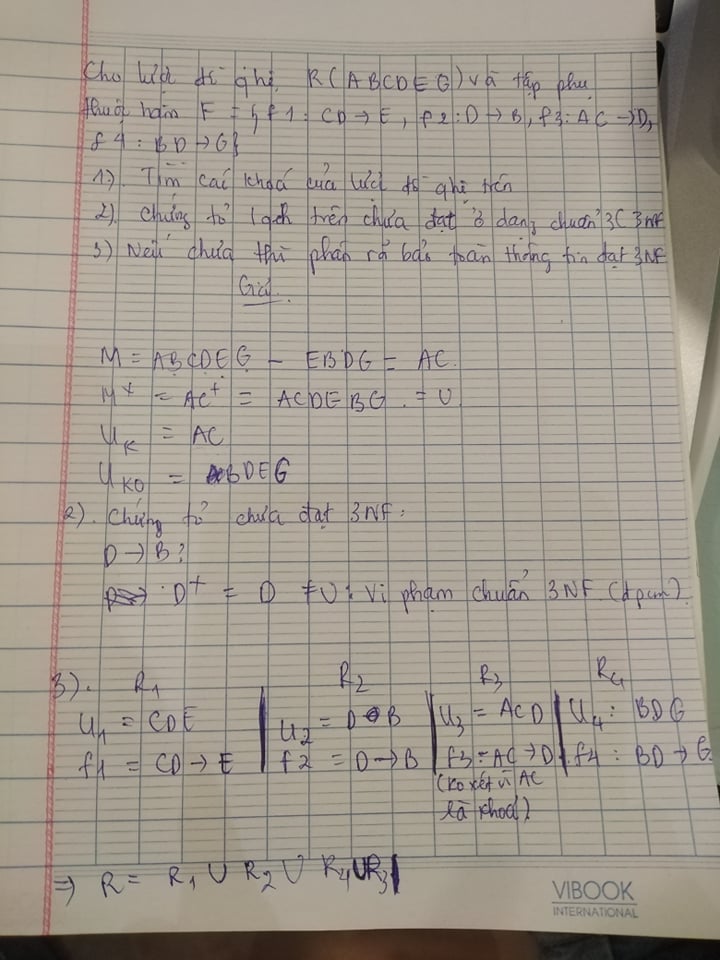 Cho lược đồ quan hệ R(ABCDEG) và tập phụ
thuộc hàm F = { f1 : CD → E, f2 : D → B, f3 : AC → D,
f4 : BD → G}
1). Tìm các khoá của lược đồ qhệ trên
2). Chứng tỏ lqđh trên chưa đạt ở dạng chuẩn 3C 3NF
3) Nếu chưa thì phân rã bảo toàn thông tin đạt 3NF
Giải.
M = ABCDEG - EBDG = AC.
M+ = AC+ = ACDEBG . = U
UK = AC
UKO = BDEG
2). Chứng tỏ chưa đạt 3NF :
D → B ?
D+ = D ≠ U : Vi phạm chuẩn 3NF. (đpcm).
3). R1 R2 R3 R4
U1 = CDE U2 = DB U3 = ACD U4 : BDG
f1 = CD → E f2 = D → B f3 = AC → D f4 : BD → G
(Ko xét vì AC
là khoá)
=> R = R1 ∪ R2 ∪ R4 ∪ R3
VIBOOK
INTERNATIONAL